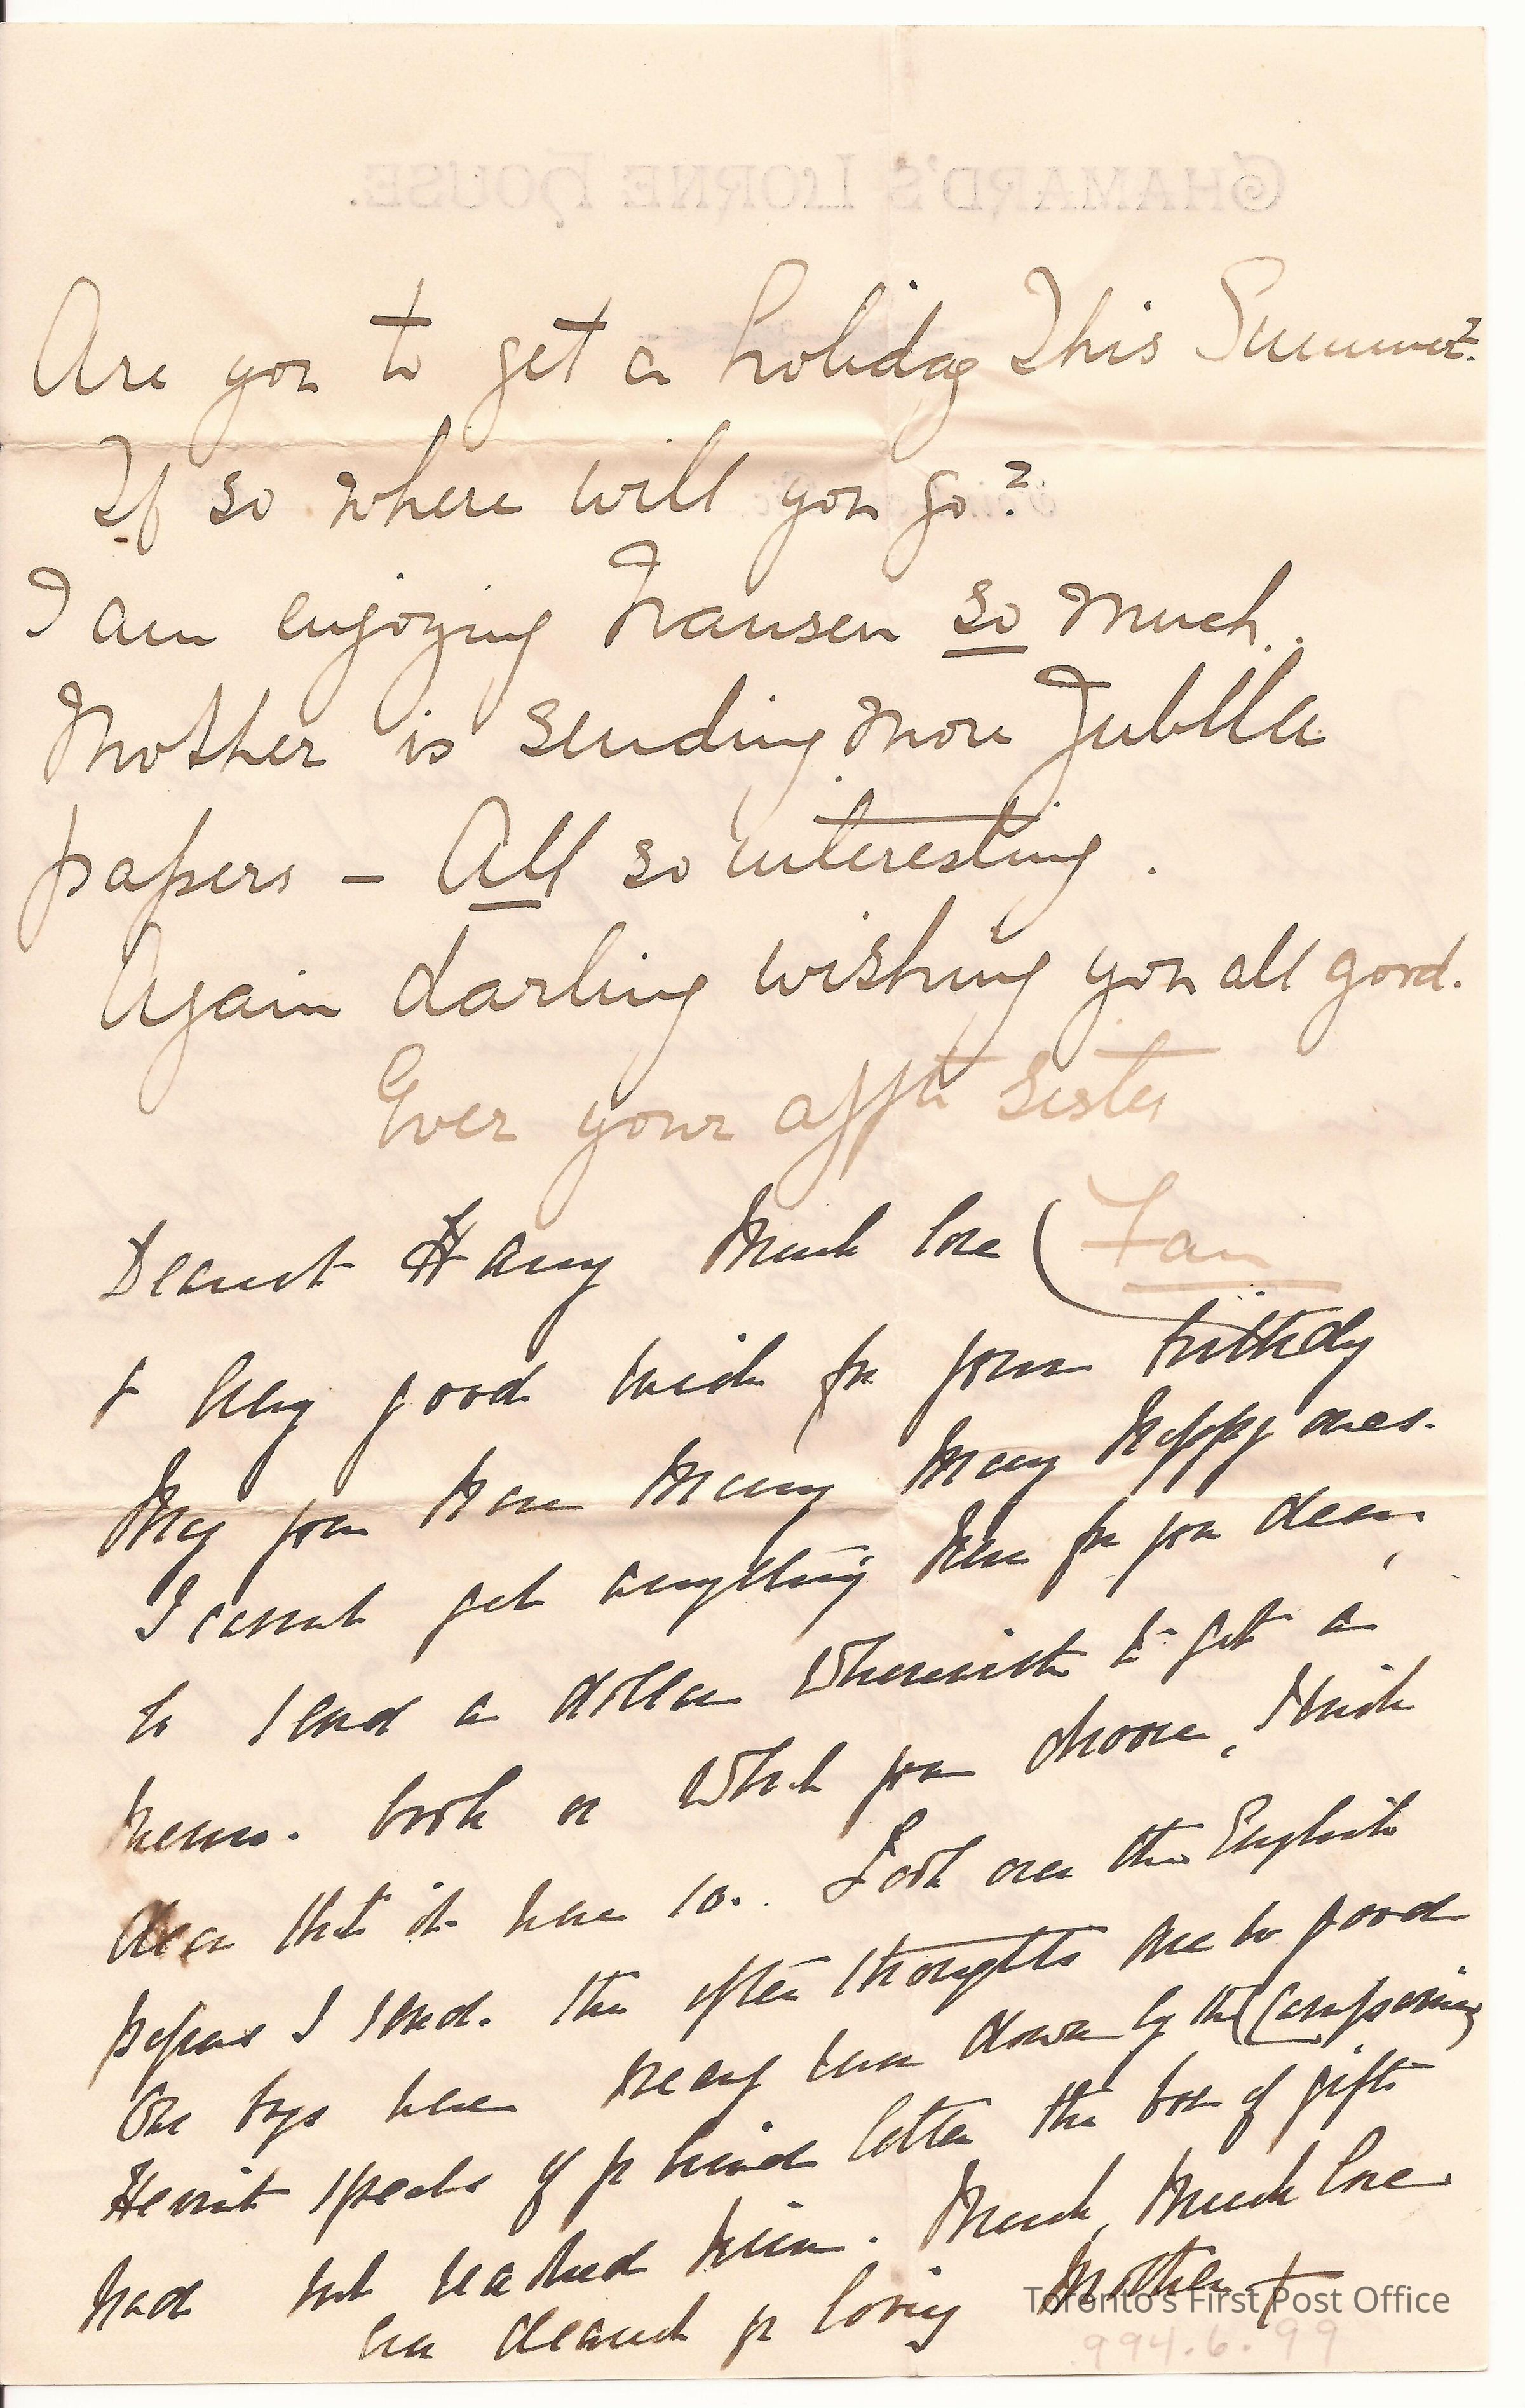 CHAMARD'S LORNE HOUSE.
Are you to get a holiday This Summer?
If so where will you go?
I am enjoying Nansen so much.
Mother is sending more Jublle
papers - All so interesting.
Again darling wishing you all good.
Ever your affte sister
Fan
Dearest Harry Much love
& every good wish for your birthday
May you have many many happy ones.
I cannot get anything here for you dear,
so send a dollar wherewith to get a
book or what you choose, I wish
dear that it were 10. Look over the English
papers I send. the after thoughts are so good
Our boys were down by the
speaks of yr kind letter the box of gifts
had not reached him. Much, Much love
dearest yr loving Mother
Toronto's First Post Office
994.6.99